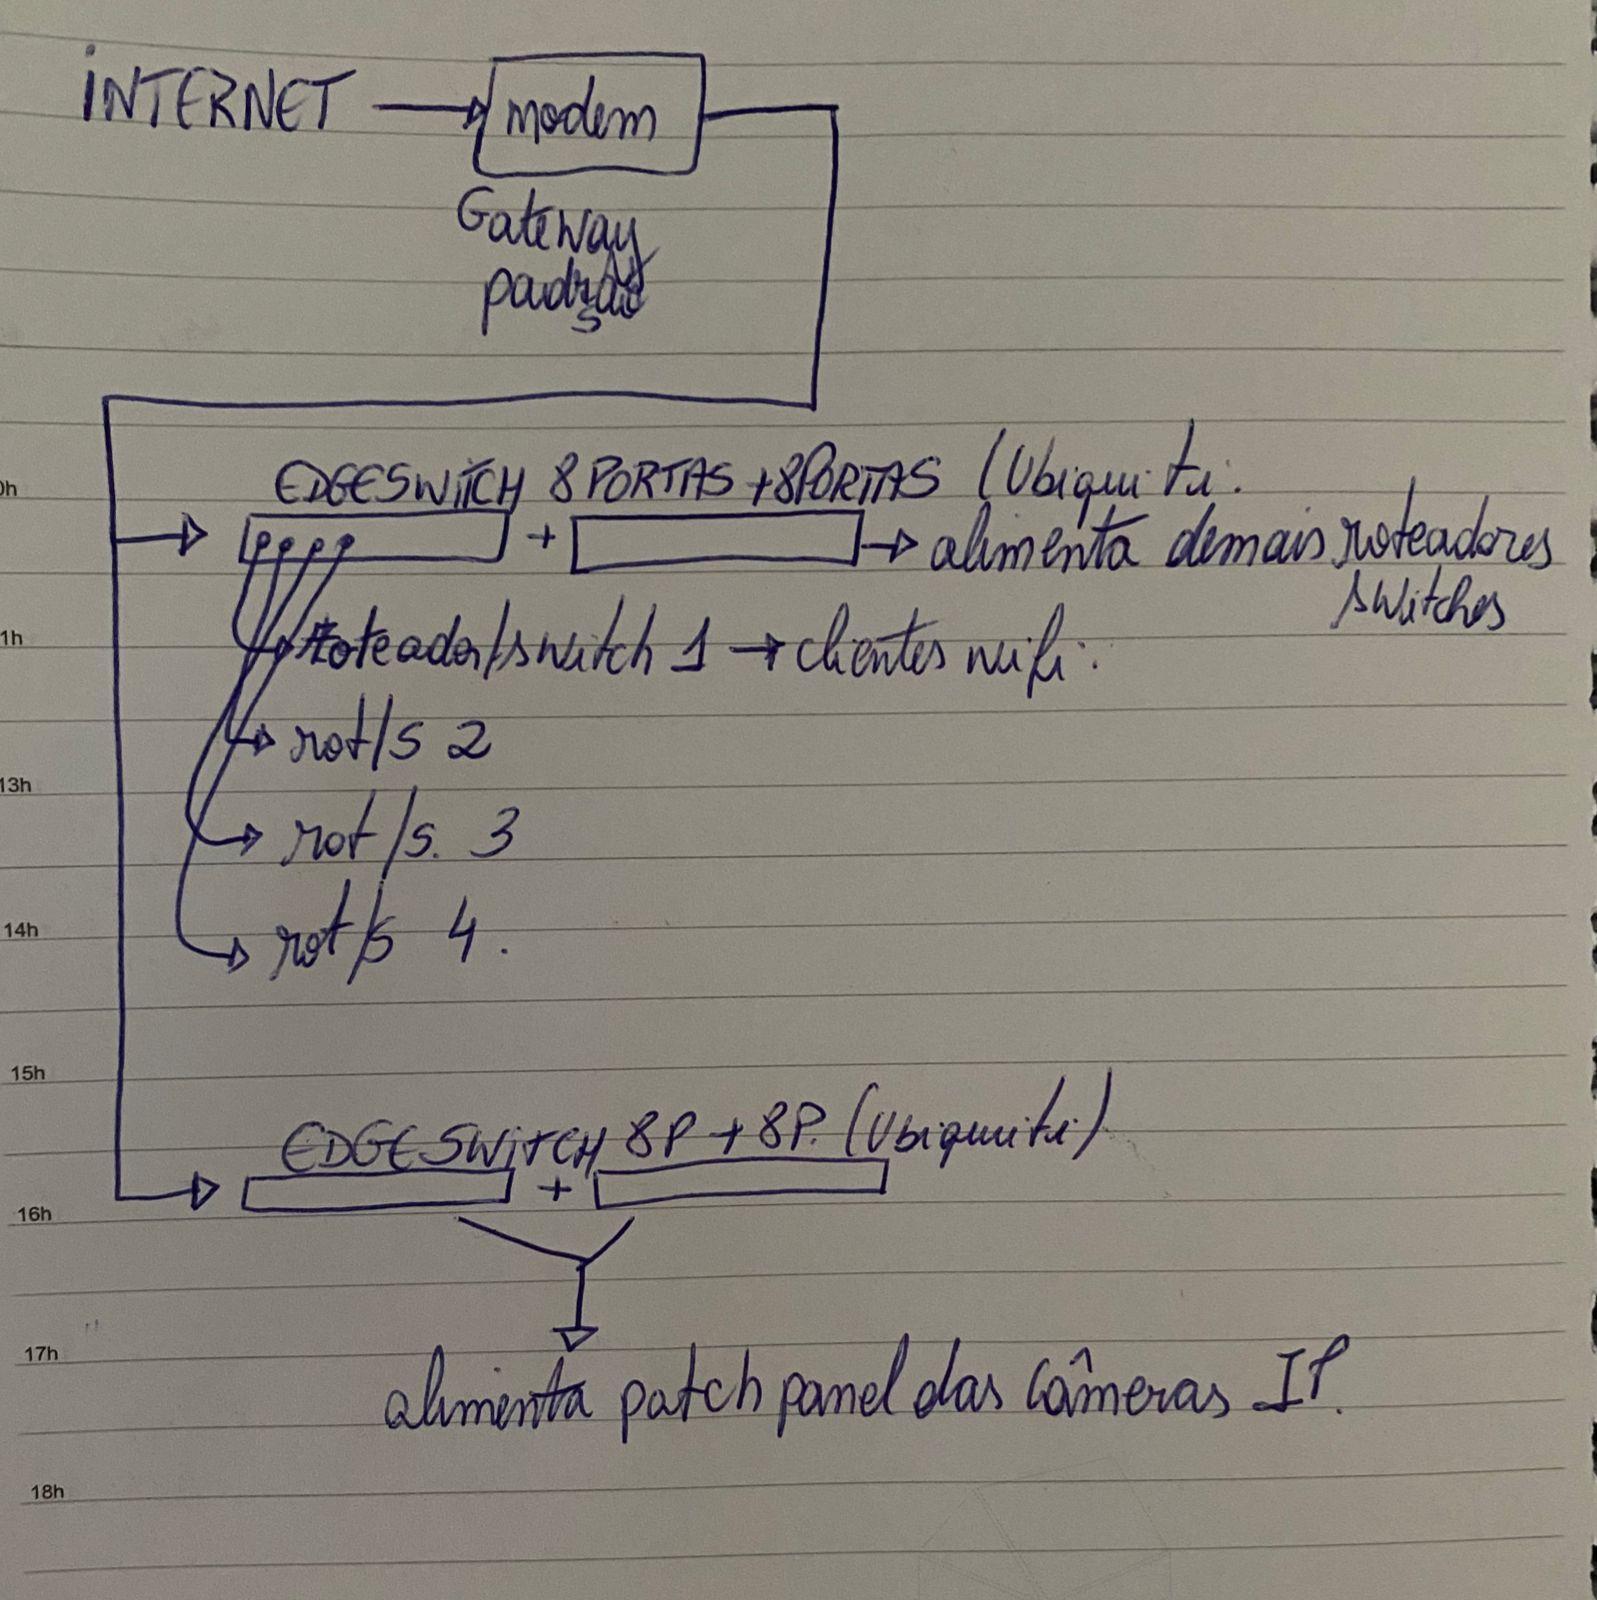 INTERNET
modem
Gateway
padrão
EDGESWITCH 8 PORTAS + 8 PORTAS (Ubiquiti.
0h
+
alimenta demais roteadores
switches
1h
roteador/switch 1 → clientes wifi.
rot/s 2
13h
rot/s. 3
14h
rot/s 4.
15h
EDGESWITCH 8P + 8P. (Ubiquiti)
+
16h
17h
alimenta patch panel das câmeras IP.
18h